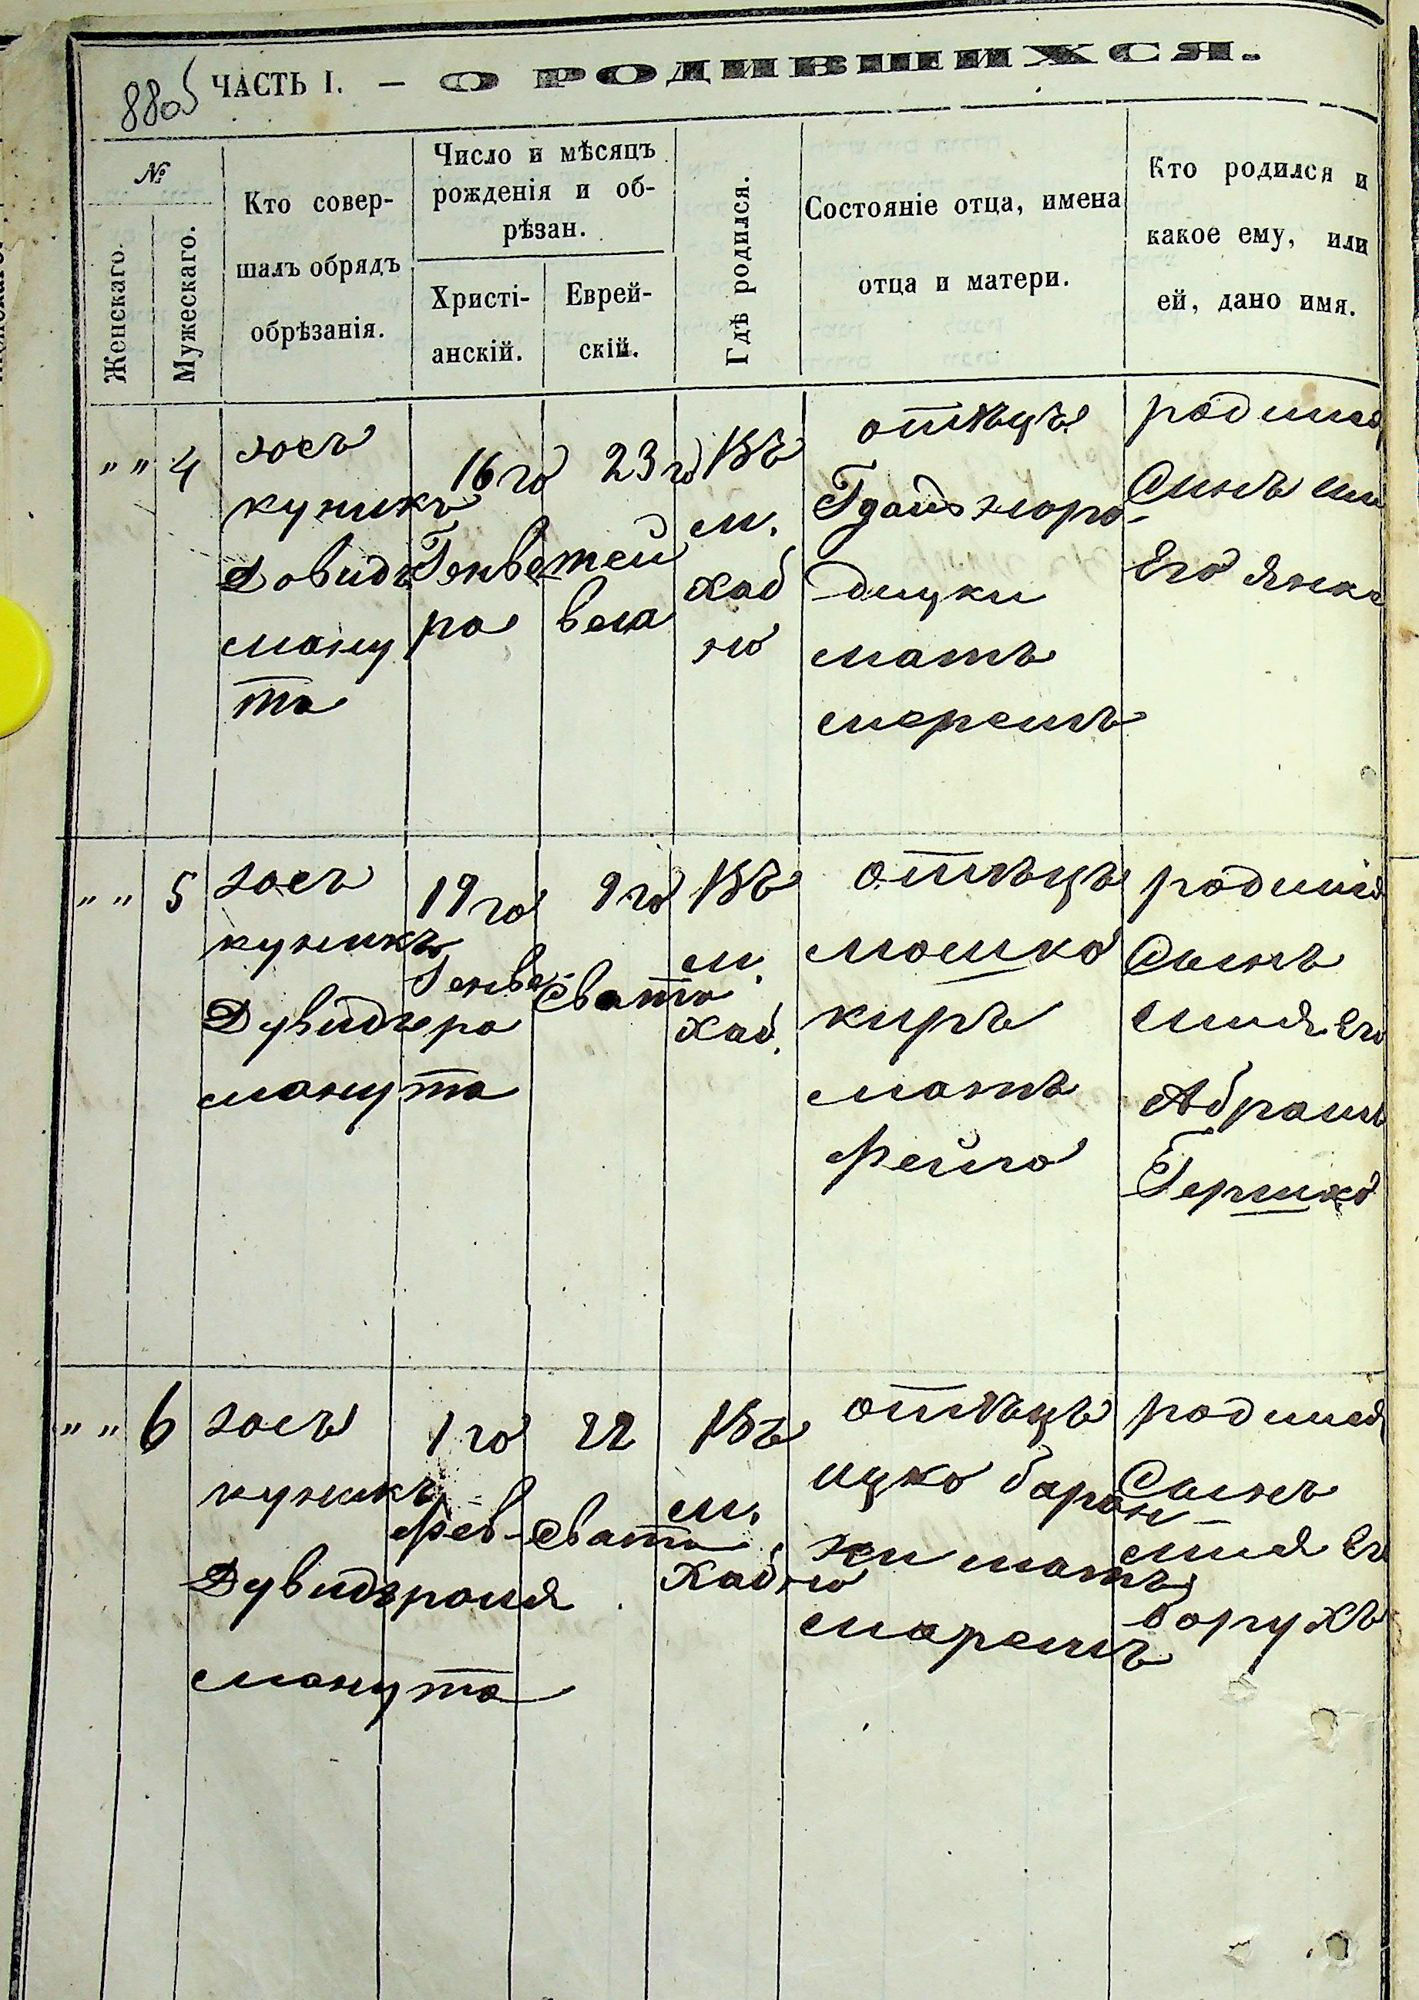 8805 ЧАСТЬ I. — О РОДИВШИХСЯ.
№
Женскаго.
Мужескаго.
Кто совер-
шалъ обрядъ
обрѣзанія.
Число и мѣсяцъ
рожденія и об-
рѣзан.
Христі-
анскій.
Еврей-
скій.
Гдѣ родился.
Состояніе отца, имена
отца и матери.
Кто родился и
какое ему, или
ей, дано имя.
"" 4
куникъ
Довидъ
ману
та
16го
Генва
ра
23го
тей
вета
Въ
м.
Хаб
но
отѣцъ
дицки
мать
меремъ
родился
Синъ
Его Янке
"" 5
куникъ
Дувидъ
манута
19го
Генва
ра
9го
Свата
Въ
м.
Хаб.
отѣцъ
мошко
киръ
мать
Фейго
родился
Сынъ
имя Его
Абрамъ
Гершко
"" 6
куникъ
Дувидъ
манута
1го
Фев-
раля
22
Свата
Въ
м.
Хабно
отѣцъ
ицко баран
ки мать
маремъ
родился
Сынъ
имя Его
Борухъ